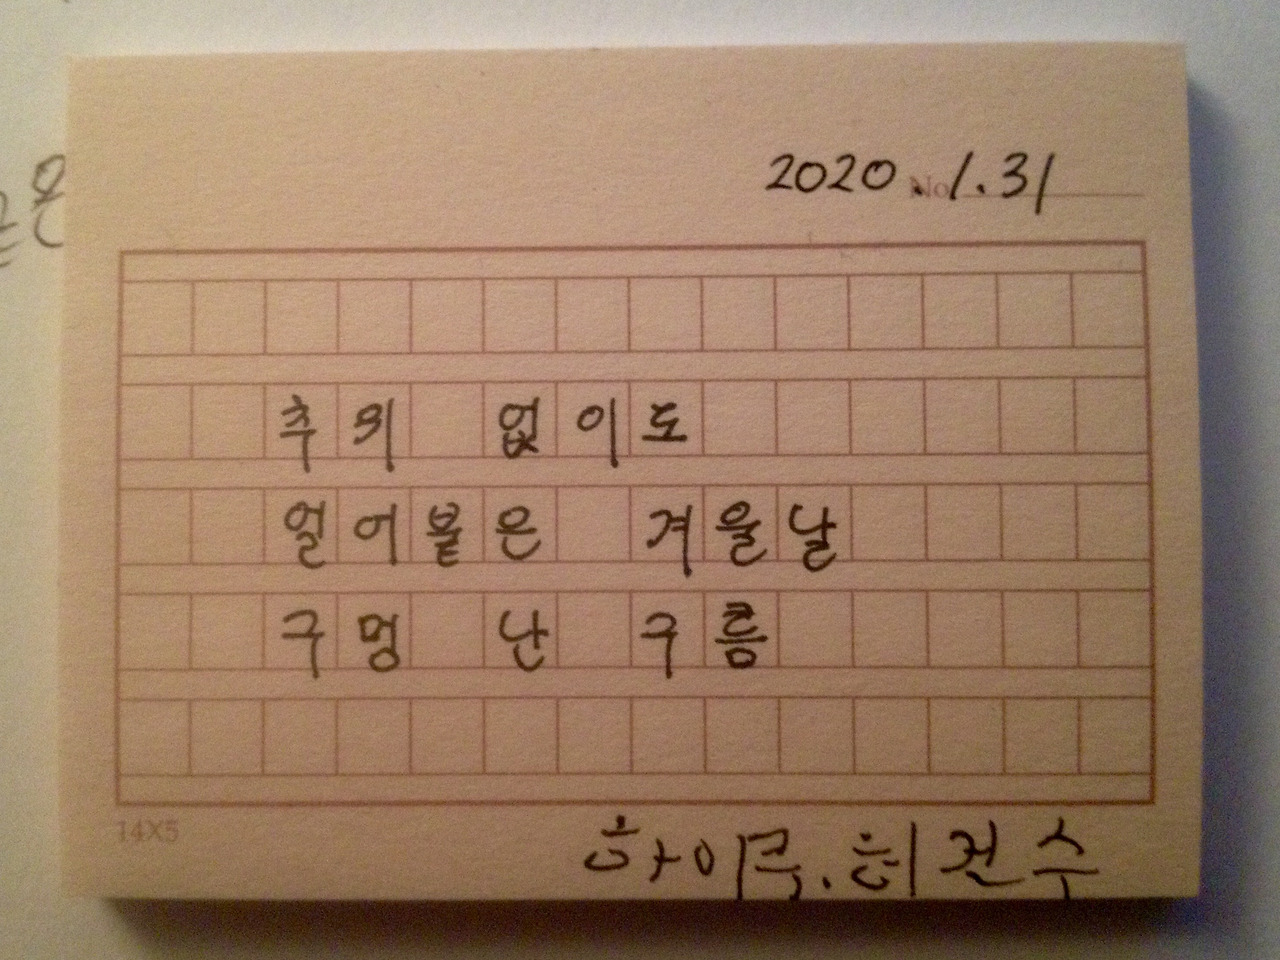 2020.1.31
No
추위 없이도
얼어붙은 겨울날
구멍 난 구름
14X5
하이쿠. 허건수